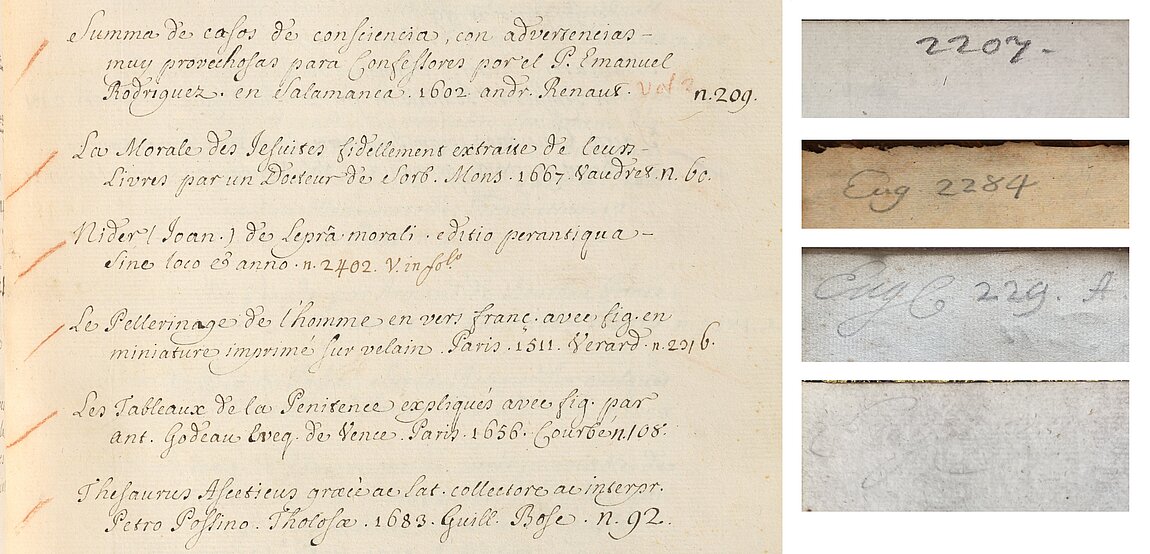 Summa de casos de consciencia, con advertencias-
muy provechosas para Confessores por el P. Emanuel
Rodriguez. en Salamanca. 1602. andr. Renaut. n. 209.
La Morale des Jesuites fidellement extraite de leurs-
Livres par un Docteur de Sorb. Mons. 1667. Vaudret. n. 60.
Nider (Joan.) de Leprâ morali. editio perantiqua-
sine loco & anno. n. 2402. V. in folo.
Le Pellerinage de l'homme en vers franç. avec fig. en
miniature imprimé sur velain. Paris. 1511. Verard. n. 2316.
Les Tableaux de la Penitence expliqués avec fig. par
ant. Godeau Eveq. de Vence. Paris. 1656. Courbé n. 108.
Thesaurus Asceticus græcè ac Lat. collectore ac interpr.
Petro Possino. Tholosæ. 1683. Guill. Bose. n. 92.
2207.-
Eug 2284
Eug C 229. A.